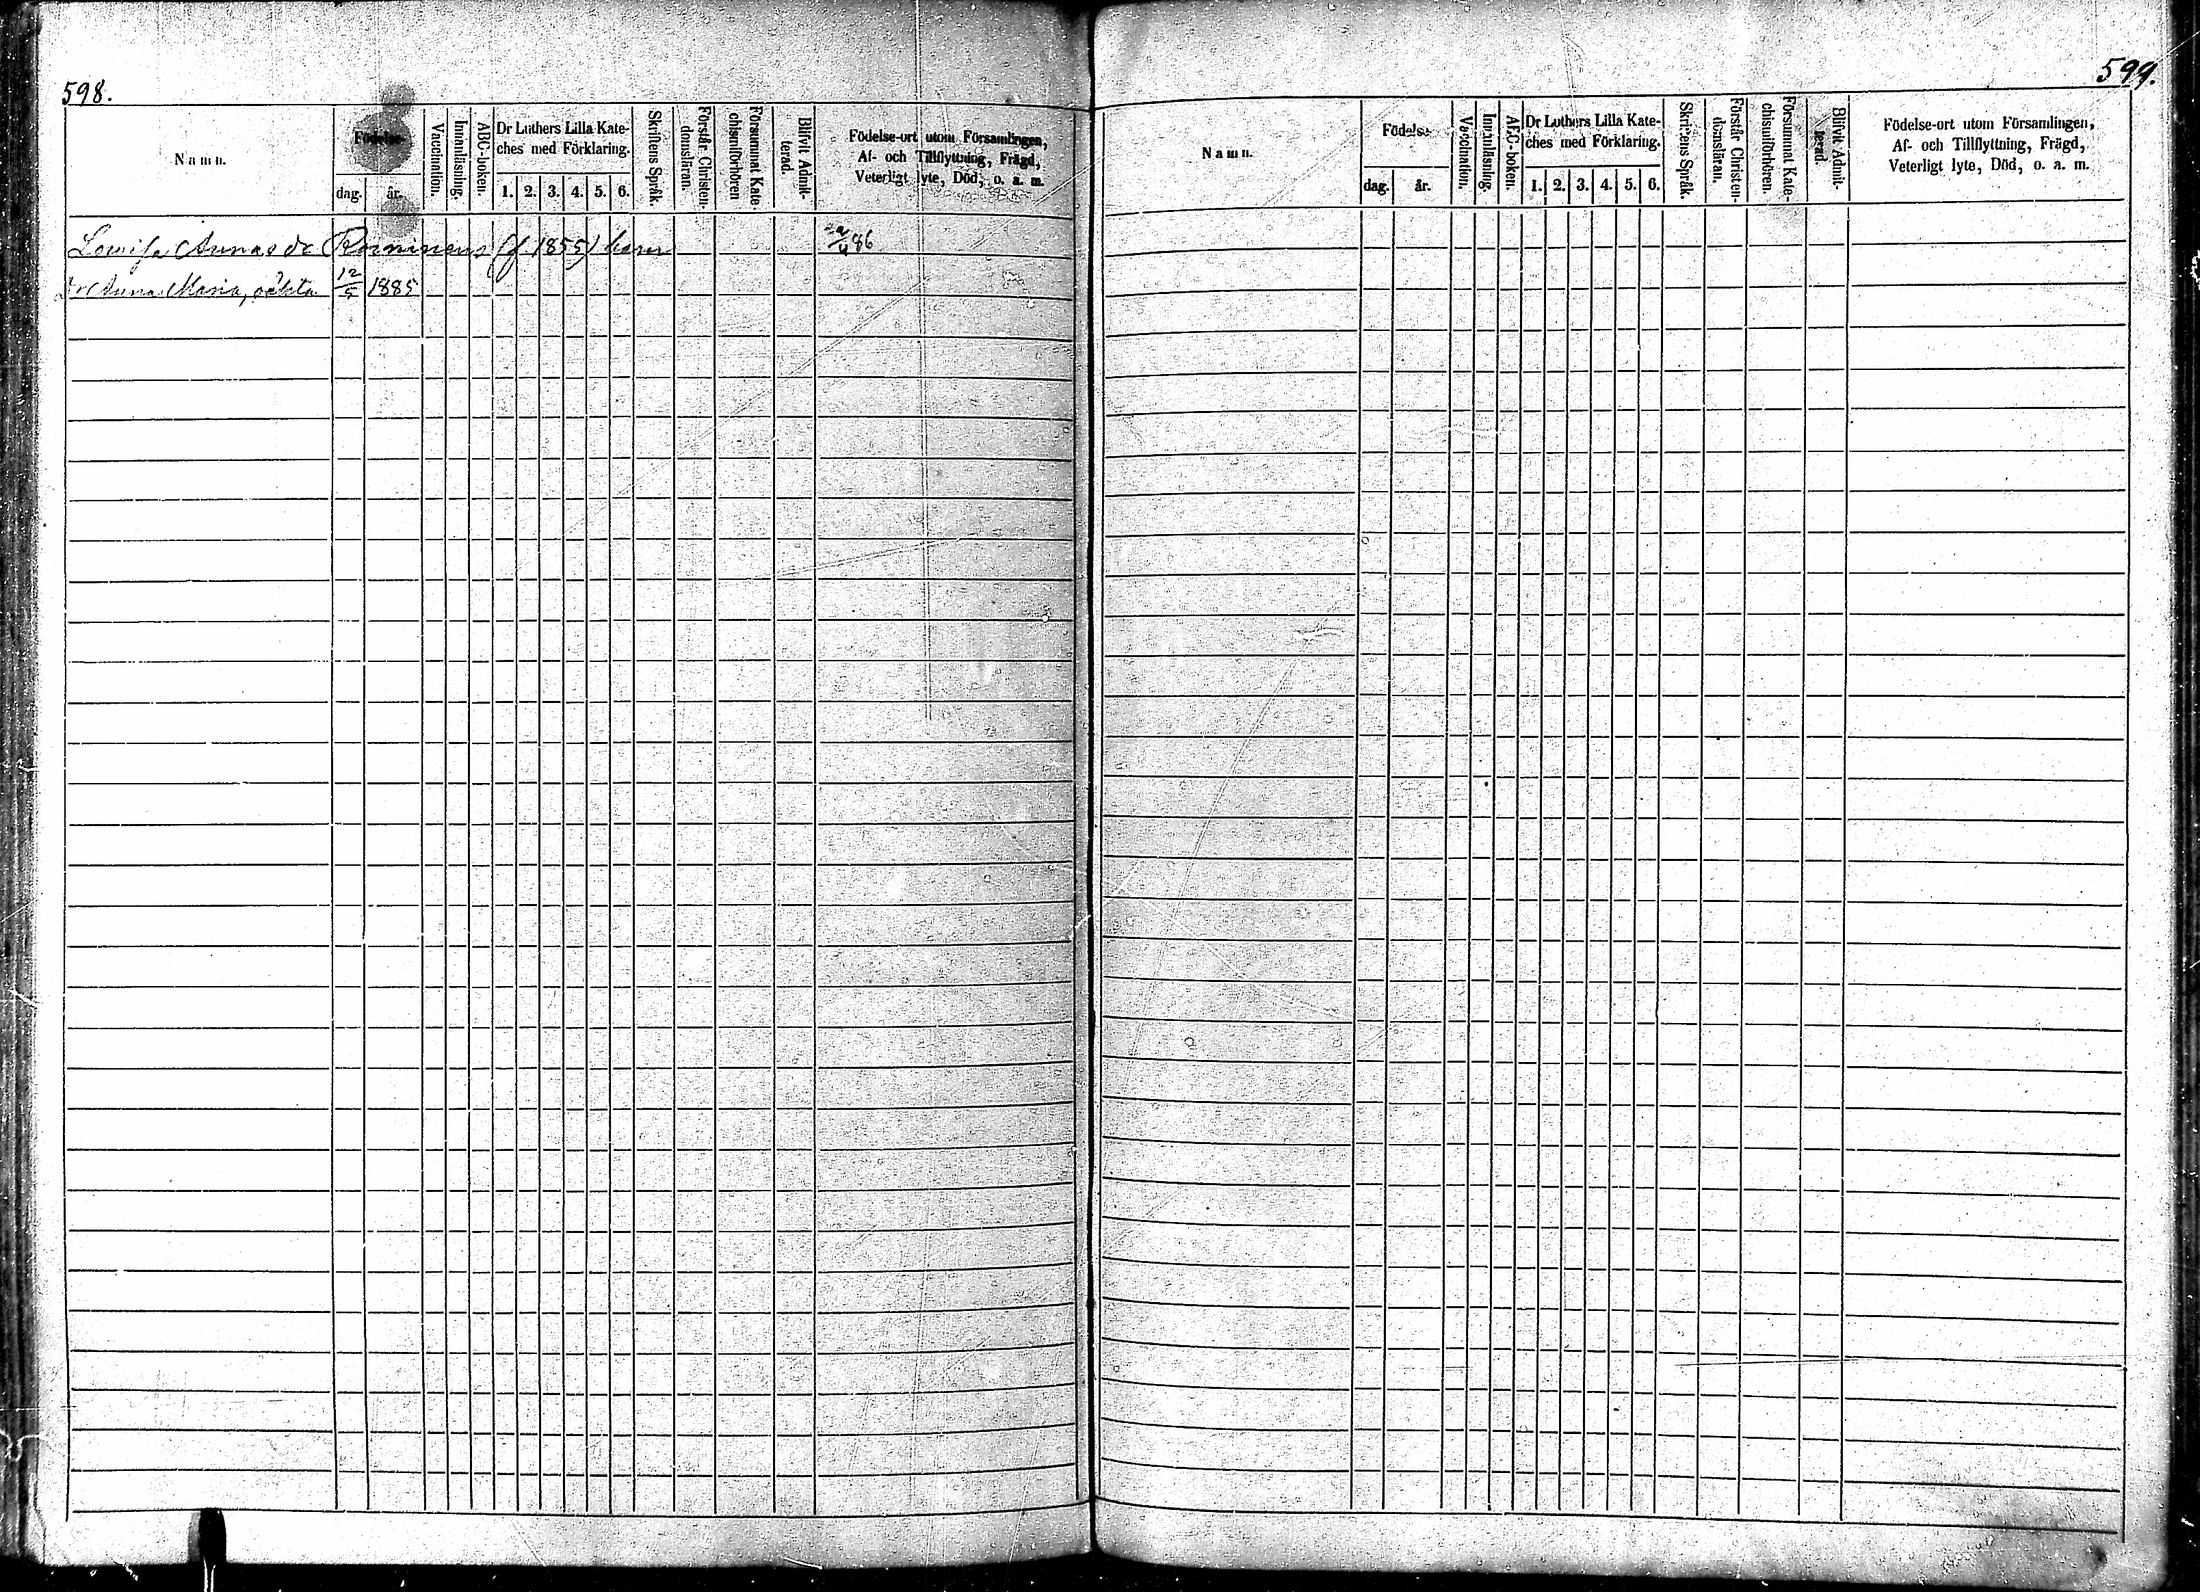 598.
Namn.
Födelse-
dag.
år.
Vaccination.
Innanläsning.
ABC-boken.
Dr Luthers Lilla Kate-
ches med Förklaring.
1. 2. 3. 4. 5. 6.
Skriftens Språk.
Förstår Christen-
domsläran.
Försummat Kate-
chismiförhören
Blifvit Admit-
terad.
Födelse-ort utom Församlingen,
Af- och Tillflyttning, Frägd,
Veterligt lyte, Död, o. a. m.
Lovisa Annas dr (f 1855) barn 86
dr Anna Maria, oäkta 12/5 1885
599.
Namn.
Födelse-
dag.
år.
Vaccination.
Innanläsning.
ABC-boken.
Dr Luthers Lilla Kate-
ches med Förklaring.
1. 2. 3. 4. 5. 6.
Skriftens Språk.
Förstår Christen-
domsläran.
Försummat Kate-
chismiförhören.
Blifvit Admit-
terad.
Födelse-ort utom Församlingen,
Af- och Tillflyttning, Frägd,
Veterligt lyte, Död, o. a. m.